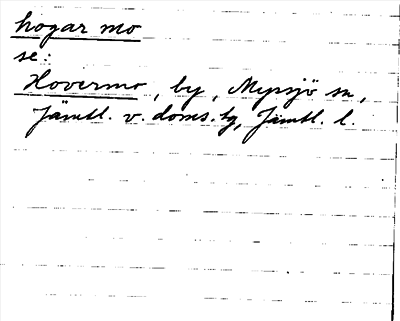 hogar mo
se:
Hovermo, by, Myssjö sn,
Jämtl. v. doms.sg, Jämtl. l.